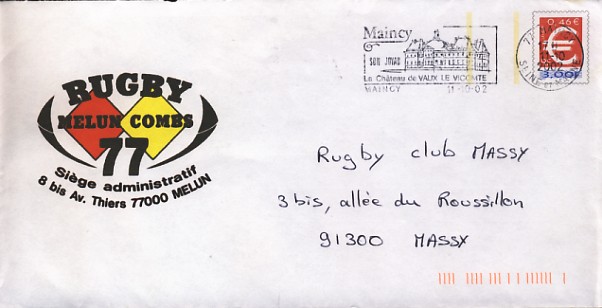 Maincy
SON JOYAU
Le Château de VAUX LE VICOMTE
MAINCY 11-10-02
0,46 €
3,00F
2002
SEINE-ET-MARNE
RUGBY
MELUN COMBS
77
Siège administratif
8 bis Av. Thiers 77000 MELUN
Rugby club MASSY
3 bis, allée du Roussillon
91300 MASSY